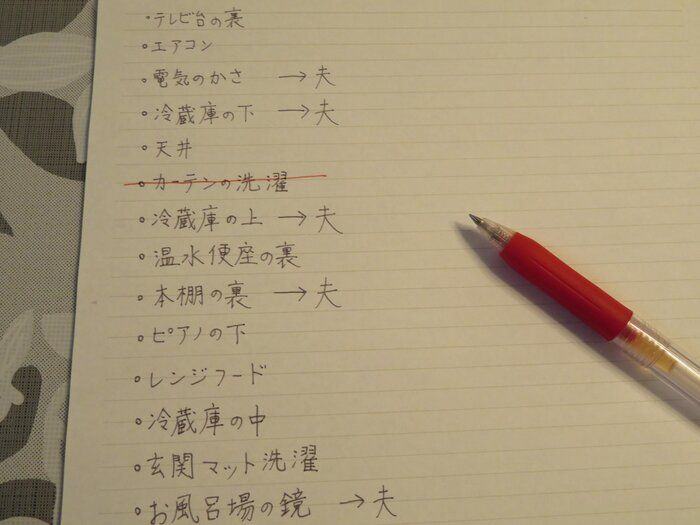 ・テレビ台の裏
・エアコン
・電気のかさ →夫
・冷蔵庫の下 →夫
・天井
・カーテンの洗濯
・冷蔵庫の上 →夫
・温水便座の裏
・本棚の裏 →夫
・ピアノの下
・レンジフード
・冷蔵庫の中
・玄関マット洗濯
・お風呂場の鏡 →夫